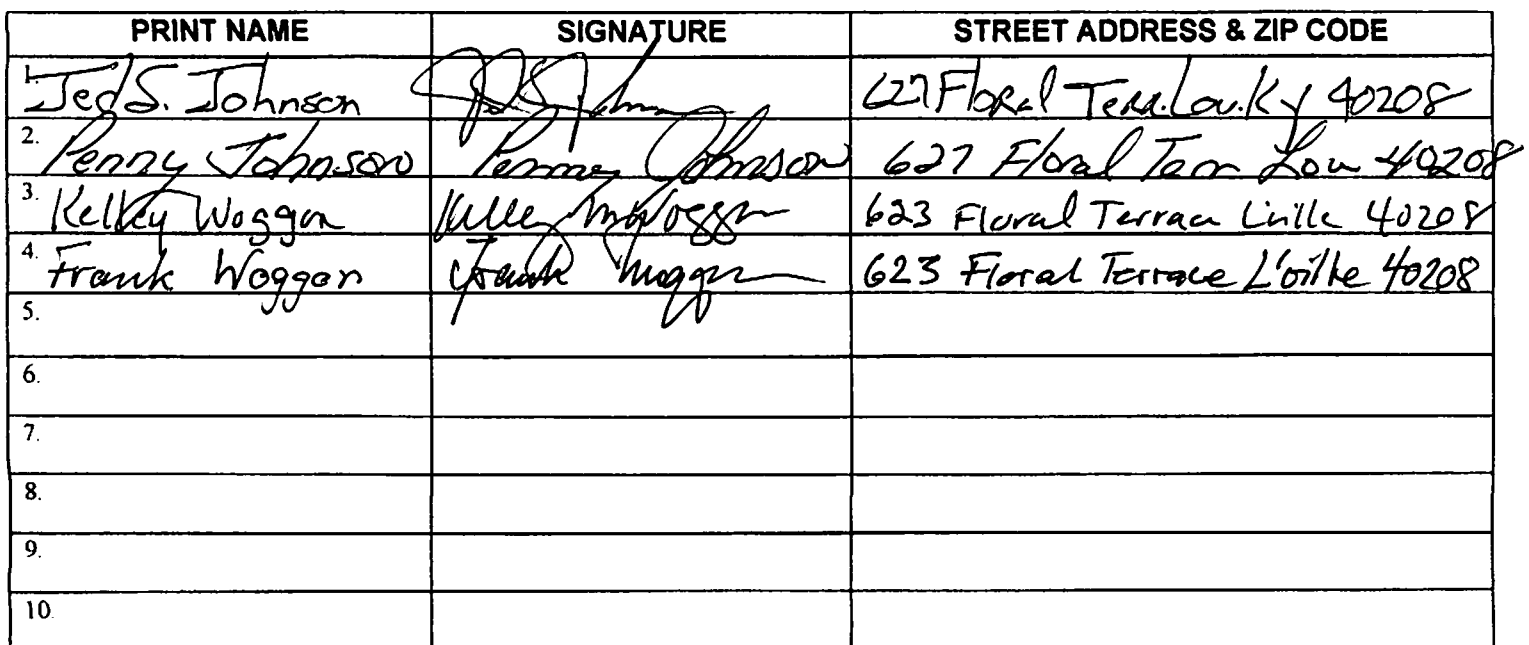 PRINT NAME SIGNATURE STREET ADDRESS & ZIP CODE
1. Jed S. Johnson 627 Floral Terr. Lou. Ky 40208
2. Penny Johnson Penny Johnson 627 Floral Terr Lou 40208
3. Kelley Woggon Kelley M Woggon 623 Floral Terrace L'ville 40208
4. Frank Woggon Frank Woggon 623 Floral Terrace L'ville 40208
5.
6.
7.
8.
9.
10.